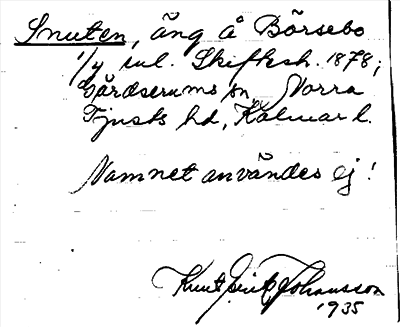 Snuten, äng å Börsebo
1/4 enl. Skifftesh. 1878;
Gärdserums sn, Norra
Tjusts hd, Kalmar l.
Namnet användes ej!
Knut Erik Johansson
1935